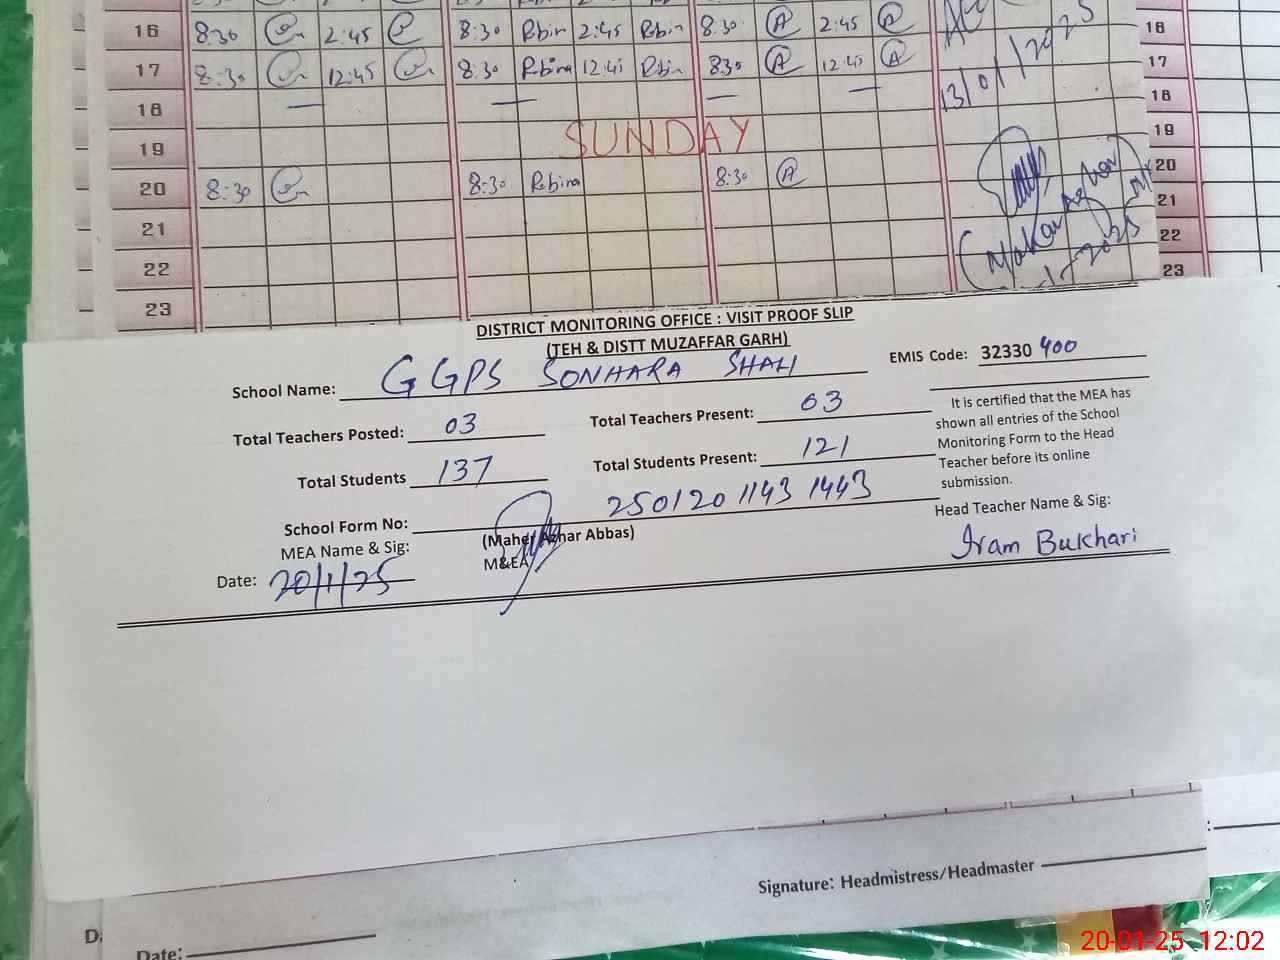 16 8:30 2:45 8:30 Robin 2:45 Robin 8:30 A 2:45 A 16
17 8:30 12:45 8:30 Robina 12:45 Robin 8:30 A 12:45 A 17
13/01/2025
18 — — — — 18
19 SUNDAY 19
20 8:30 8:30 Robina 8:30 A 20
21 21
22 22
23 23
DISTRICT MONITORING OFFICE : VISIT PROOF SLIP
(TEH & DISTT MUZAFFAR GARH)
School Name: GGPS SONHARA SHALI EMIS Code: 32330 400
Total Teachers Posted: 03 Total Teachers Present: 03
Total Students 137 Total Students Present: 121
It is certified that the MEA has
shown all entries of the School
Monitoring Form to the Head
Teacher before its online
submission.
School Form No: 250120 1143 1443
MEA Name & Sig: (Maher Azhar Abbas)
M&EA
Head Teacher Name & Sig:
Iram Bukhari
Date: 20/1/25
Signature: Headmistress/Headmaster
Date:
20-01-25 12:02